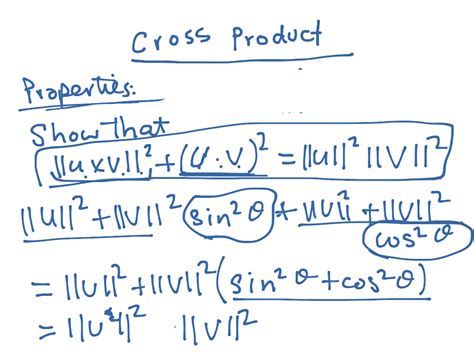 Cross Product
Properties:
Show that
||u×v||² + (u·v)² = ||u||² ||v||²
||u||² + ||v||² sin²θ + ||u||² + ||v||² cos²θ
= ||u||² + ||v||² (sin²θ + cos²θ)
= ||u||² ||v||²